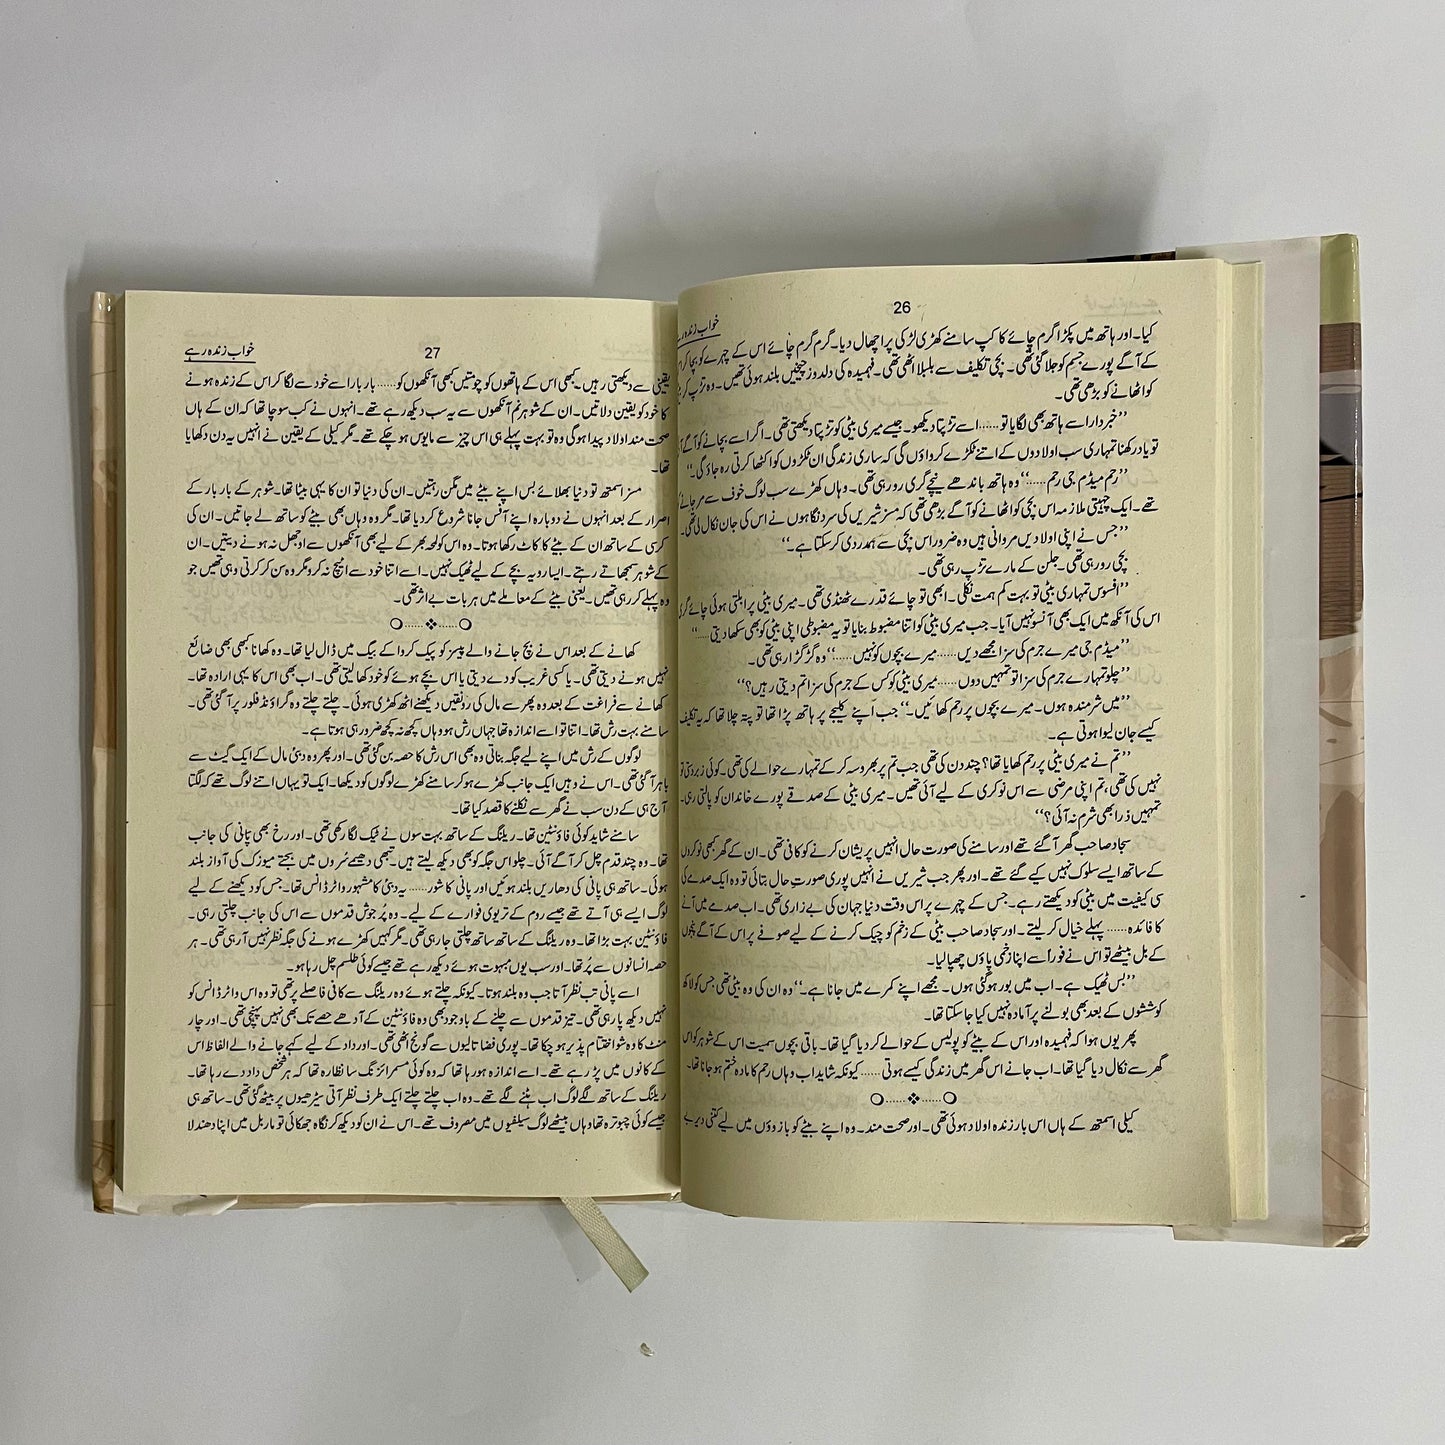 26
خواب زندہ رہے
کیا۔ اور ہاتھ میں پکڑا گرم چائے کا کپ سامنے کھڑی لڑکی پر اچھال دیا۔ گرم گرم چائے اس کے چہرے کو بچا کر اس
کے آگے پورے جسم کو جلا گئی تھی۔ بچی تکلیف سے بلبلا اٹھی تھی۔ فہمیدہ کی دلدوز چیخیں بلند ہوئی تھیں۔ وہ تڑپ کر
کو اٹھانے کو بڑھی تھی۔
’’خبردار اسے ہاتھ بھی لگایا تو...... اسے تڑپتا دیکھو۔ جیسے میری بیٹی کو تڑپتا دیکھتی تھی۔ اگر اسے بچانے کو آگے
تو یاد رکھنا تمہاری سب اولادوں کے اتنے ٹکڑے کرواؤں گی کہ ساری زندگی ان ٹکڑوں کو اکٹھا کرتی رہ جاؤ گی۔‘‘
’’رحم میڈم جی رحم......‘‘ وہ ہاتھ باندھے نیچے گری رو رہی تھی۔ وہاں کھڑے سب لوگ خوف سے مر جانے
تھے۔ ایک چہیتی ملازمہ اس بچی کو اٹھانے کو آگے بڑھی تھی کہ مسز شیریں کی سرد نگاہوں نے اس کی جان نکال لی تھی۔
’’جس نے اپنی اولادیں مروانی ہیں وہ ضرور اس بچی سے ہمدردی کر سکتا ہے۔‘‘
بچی رو رہی تھی۔ جلن کے مارے تڑپ رہی تھی۔
’’افسوس تمہاری بیٹی تو بہت کم ہمت نکلی۔ ابھی تو چائے قدرے ٹھنڈی تھی۔ میری بیٹی پر ابلتی ہوئی چائے گری
اس کی آنکھ میں ایک بھی آنسو نہیں آیا۔ جب میری بیٹی کو اتنا مضبوط بنایا تو یہ مضبوطی اپنی بیٹی کو بھی سکھا دیتی......‘‘
’’میڈم جی میرے جرم کی سزا مجھے دیں...... میرے بچوں کو نہیں......‘‘ وہ گڑگڑا رہی تھی۔
’’چلو تمہارے جرم کی سزا تو تمہیں دوں...... میری بیٹی کو کس کے جرم کی سزا تم دیتی رہیں؟‘‘
’’میں شرمندہ ہوں۔ میرے بچوں پر رحم کھائیں۔‘‘ جب اپنے کلیجے پر ہاتھ پڑا تھا تو پتہ چلا تھا کہ یہ تکلیف
کیسے جان لیوا ہوتی ہے۔
’’تم نے میری بیٹی پر رحم کھایا تھا؟ چند دن کی تھی جب تم پر بھروسہ کر کے تمہارے حوالے کی تھی۔ کوئی زبردستی تو
نہیں کی تھی، تم اپنی مرضی سے اس نوکری کے لیے آئی تھیں۔ میری بیٹی کے صدقے پورے خاندان کو پالتی رہی۔
تمہیں ذرا بھی شرم نہ آئی؟‘‘
سجاد صاحب گھر آ گئے تھے اور سامنے کی صورت حال انہیں پریشان کرنے کو کافی تھی۔ ان کے گھر کبھی نوکروں
کے ساتھ ایسے سلوک نہیں کیے گئے تھے۔ اور پھر جب شیریں نے انہیں پوری صورتِ حال بتائی تو وہ ایک صدمے کی
سی کیفیت میں بیٹی کو دیکھتے رہے۔ جس کے چہرے پر اس وقت دنیا جہان کی بے زاری تھی۔ اب صدمے میں آنے
کا فائدہ...... پہلے خیال کر لیتے۔ اور سجاد صاحب بیٹی کے زخم کو چیک کرنے کے لیے صوفے پر اس کے آگے پنجوں
کے بل بیٹھے تو اس نے فوراً سے اپنا زخمی پاؤں چھپا لیا۔
’’بس ٹھیک ہے۔ اب میں بور ہو گئی ہوں۔ مجھے اپنے کمرے میں جانا ہے۔‘‘ وہ ان کی وہ بیٹی تھی جس کو لاکھ
کوششوں کے بعد بھی بولنے پر آمادہ نہیں کیا جا سکتا تھا۔
پھر یوں ہوا کہ فہمیدہ اور اس کے بیٹے کو پولیس کے حوالے کر دیا گیا تھا۔ باقی بچوں سمیت اس کے شوہر کو اس
گھر سے نکال دیا گیا تھا۔ اب جانے اس گھر میں زندگی کیسے ہوتی...... کیونکہ شاید اب وہاں رحم کا مادہ ختم ہو جانا تھا۔
کیلی اسمتھ کے ہاں اس بار زندہ اولاد ہوئی تھی۔ اور صحت مند۔ وہ اپنے بیٹے کو بازوؤں میں لیے کتنی دیر بے
27
خواب زندہ رہے
یقینی سے دیکھتی رہیں۔ کبھی اس کے ہاتھوں کو چومتیں کبھی آنکھوں کو...... بار بار اسے خود سے لگا کر اس کے زندہ ہونے
کا خود کو یقین دلاتیں۔ ان کے شوہر نم آنکھوں سے یہ سب دیکھ رہے تھے۔ انہوں نے کب سوچا تھا کہ ان کے ہاں
صحت مند اولاد پیدا ہو گی وہ تو بہت پہلے ہی اس چیز سے مایوس ہو چکے تھے۔ مگر کیلی کے یقین نے انہیں یہ دن دکھایا
تھا۔
مسز اسمتھ تو دنیا بھلائے بس اپنے بیٹے میں مگن رہتیں۔ ان کی دنیا تو ان کا یہی بیٹا تھا۔ شوہر کے بار بار کے
اصرار کے بعد انہوں نے دوبارہ اپنے آفس جانا شروع کر دیا تھا۔ مگر وہ وہاں بھی بیٹے کو ساتھ لے جاتیں۔ ان کی
کرسی کے ساتھ ان کے بیٹے کا کاٹ رکھا ہوتا۔ وہ اس کو لمحہ بھر کے لیے بھی آنکھوں سے اوجھل نہ ہونے دیتیں۔ ان
کے شوہر سمجھاتے رہتے۔ ایسا رویہ بچے کے لیے ٹھیک نہیں۔ اسے اتنا خود سے اٹیچ نہ کرو مگر وہ سن کر کرتی وہی تھیں جو
وہ پہلے کر رہی تھیں۔ یعنی بیٹے کے معاملے میں ہر بات بے اثر تھی۔
کھانے کے بعد اس نے بچ جانے والے پیسز کو پیک کروا کے بیگ میں ڈال لیا تھا۔ وہ کھانا کبھی بھی ضائع
نہیں ہونے دیتی تھی۔ یا کسی غریب کو دے دیتی یا اس بچے ہوئے کو خود کھا لیتی تھی۔ اب بھی اس کا یہی ارادہ تھا۔
کھانے سے فراغت کے بعد وہ پھر سے مال کی رونقیں دیکھنے اٹھ کھڑی ہوئی۔ چلتے چلتے وہ گراؤنڈ فلور پر آ گئی تھی۔
سامنے بہت رش تھا۔ اتنا تو اسے اندازہ تھا جہاں رش ہو وہاں کچھ نہ کچھ ضرور ہی ہوتا ہے۔
لوگوں کے رش میں اپنے لیے جگہ بناتی وہ بھی اس رش کا حصہ بن گئی تھی۔ اور پھر وہ دبئی مال کے ایک گیٹ سے
باہر آ گئی تھی۔ اس نے وہیں ایک جانب کھڑے ہو کر سامنے کھڑے لوگوں کو دیکھا۔ ایک تو یہاں اتنے لوگ تھے کہ لگتا
آج ہی کے دن سب نے گھر سے نکلنے کا قصد کیا تھا۔
سامنے شاید کوئی فاؤنٹین تھا۔ ریلنگ کے ساتھ بہت سوں نے ٹیک لگا رکھی تھی۔ اور رخ بھی پانی کی جانب
تھا۔ وہ چند قدم چل کر آگے آئی۔ چلو اس جگہ کو بھی دیکھ لیتے ہیں۔ تبھی دھیمے سروں میں بجتے میوزک کی آواز بلند
ہوئی۔ ساتھ ہی پانی کی دھاریں بلند ہوئیں اور پانی کا شور...... یہ دبئی کا مشہور واٹر ڈانس تھا۔ جس کو دیکھنے کے لیے
لوگ ایسے ہی آتے تھے جیسے روم کے تریوی فوارے کے لیے۔ وہ پُر جوش قدموں سے اس کی جانب چلتی رہی۔
فاؤنٹین بہت بڑا تھا۔ وہ ریلنگ کے ساتھ ساتھ چلتی جا رہی تھی۔ مگر کہیں کھڑے ہونے کی جگہ نظر نہیں آ رہی تھی۔ ہر
حصہ انسانوں سے پُر تھا۔ اور سب یوں مبہوت ہوئے دیکھ رہے تھے جیسے کوئی طلسم چل رہا ہو۔
اسے پانی تب نظر آتا جب وہ بلند ہوتا۔ کیونکہ چلتے ہوئے وہ ریلنگ سے کافی فاصلے پر تھی تو وہ اس واٹر ڈانس کو
نہیں دیکھ پا رہی تھی۔ تیز قدموں سے چلنے کے باوجود بھی وہ فاؤنٹین کے آدھے حصے تک بھی نہیں پہنچی تھی۔ اور چار
منٹ کا وہ شو اختتام پذیر ہو چکا تھا۔ پوری فضا تالیوں سے گونج اٹھی تھی۔ اور داد کے لیے کہے جانے والے الفاظ اس
کے کانوں میں پڑ رہے تھے۔ اسے اندازہ ہو رہا تھا کہ وہ کوئی مسمرائزنگ سا نظارہ تھا کہ ہر شخص داد دے رہا تھا۔
ریلنگ کے ساتھ لگے لوگ اب ہٹنے لگے تھے۔ وہ اب چلتے چلتے ایک طرف نظر آتی سیڑھیوں پر بیٹھ گئی تھی۔ ساتھ ہی
جیسے کوئی چبوترہ تھا وہاں بیٹھے لوگ سیلفیوں میں مصروف تھے۔ اس نے ان کو دیکھ کر نگاہ جھکائی تو ماربل میں اپنا دھندلا